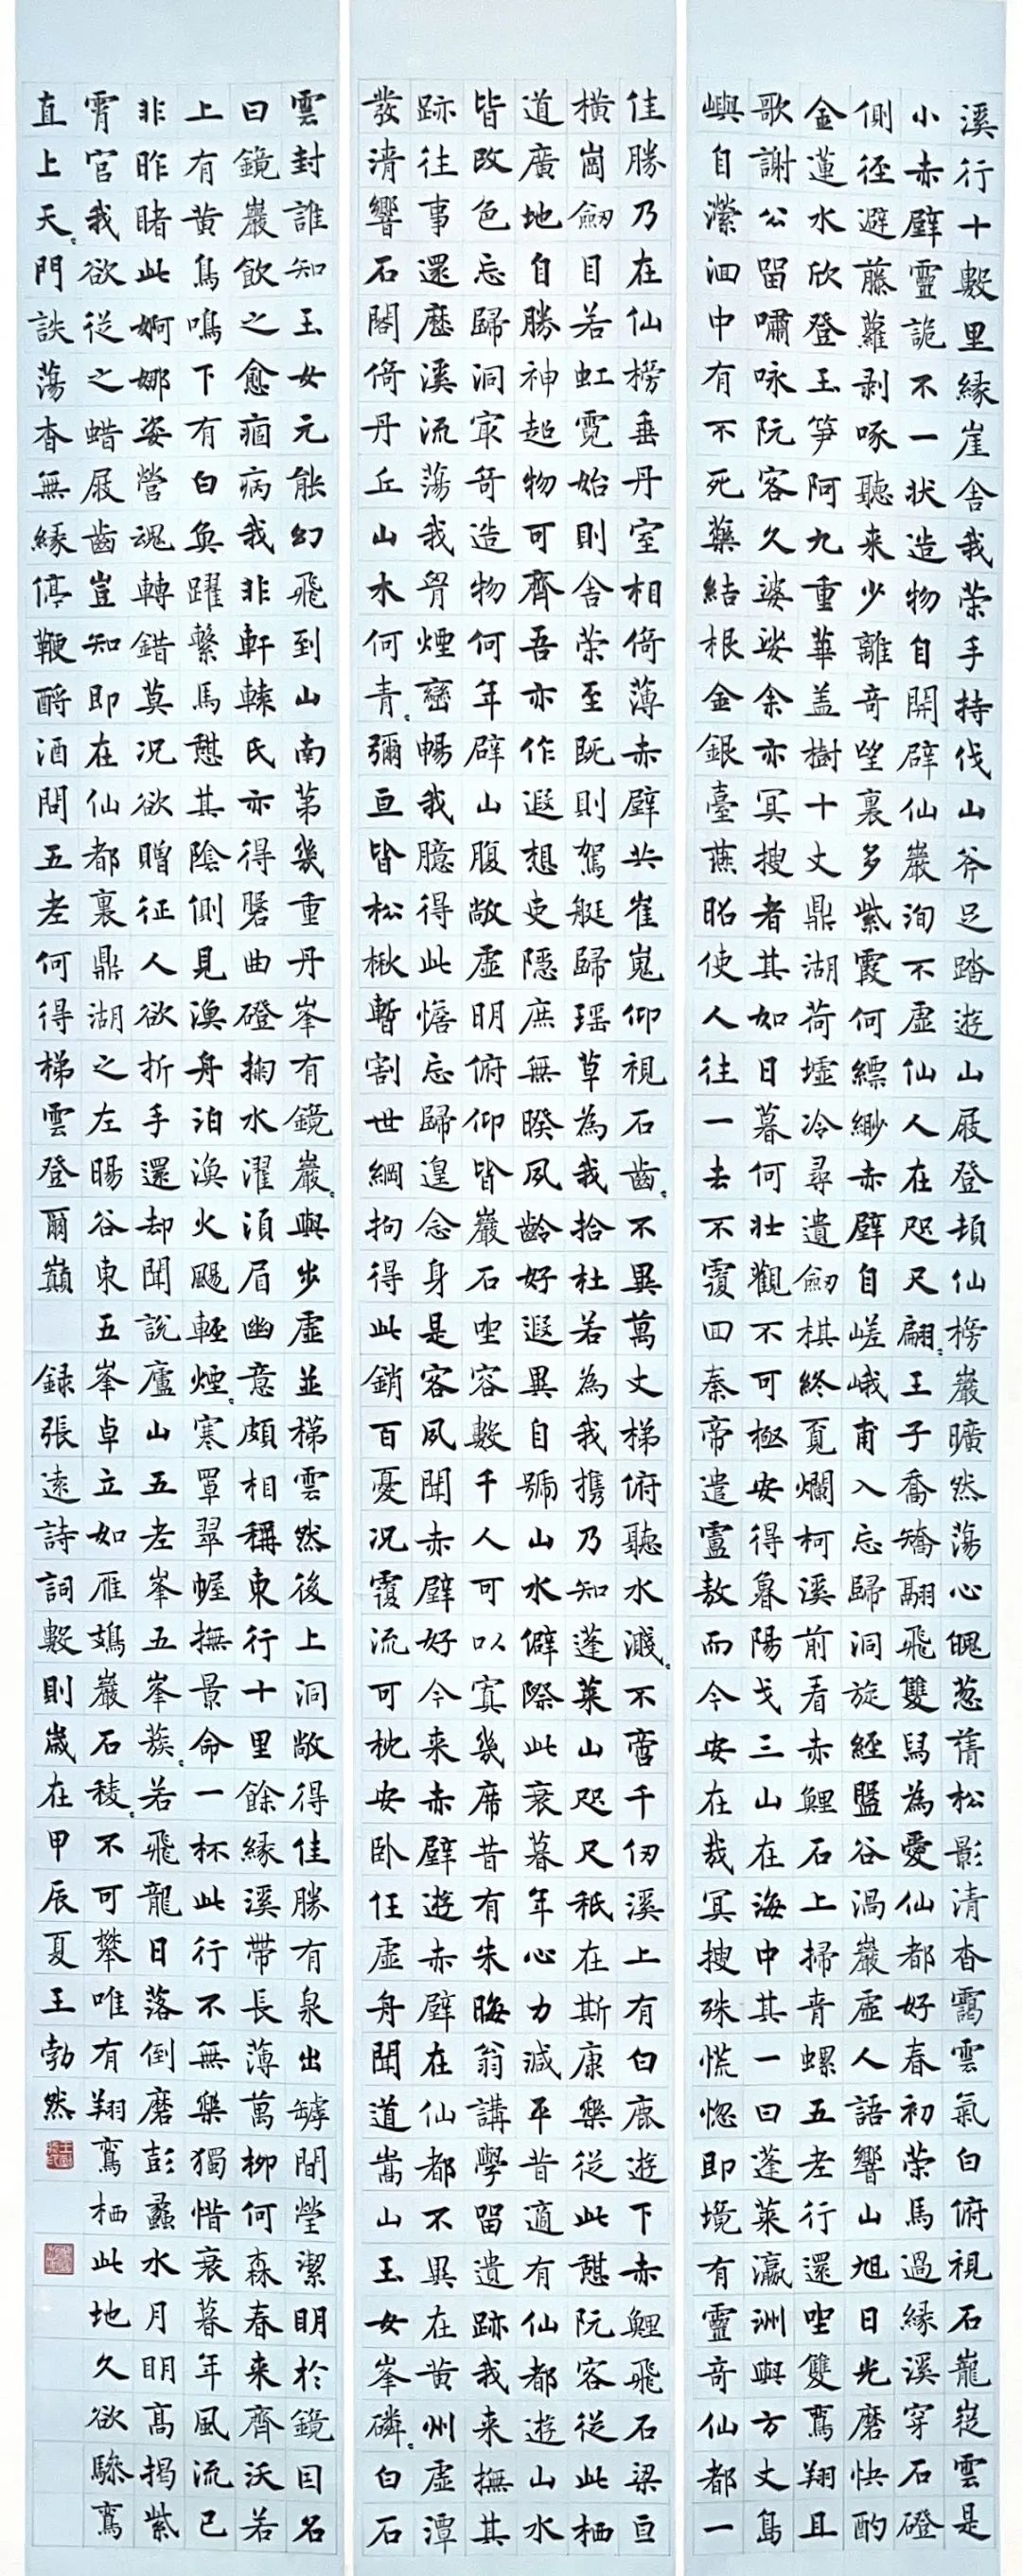 溪行十數里緣崖舍我榮手持伐山斧足踏遊山屐登頓仙榜巖曠然蕩心魄蔥蒨松影清杳靄雲氣白俯視石巃嵸雲是
小赤壁靈詭不一狀造物自開辟仙巖洵不虛仙人在咫尺翩〻王子喬矯翮飛雙舄為愛仙都好春初榮馬過緣溪穿石磴
側徑避藤蘿剥啄聽来少離奇望裏多紫霞何縹緲赤壁自嵯峨甫入忘歸洞旋經盤谷渦巖虛人語響山旭日光磨快酌
金蓮水欣登玉笋阿九重華盖樹十丈鼎湖荷墟冷尋遺劒棋終覓爛柯溪前看赤鯉石上掃青螺五老行還望雙鸞翔且
歌謝公留嘯咏阮客久婆娑余亦冥搜者其如日暮何壯觀不可極安得魯陽戈三山在海中其一曰蓬萊瀛洲與方丈島
嶼自瀠洄中有不死藥結根金銀臺燕昭使人往一去不覆回秦帝遣盧敖而今安在哉冥搜殊慌惚即境有靈奇仙都一
佳勝乃在仙榜垂丹室相倚薄赤壁共崔嵬仰視石齒〻不異萬丈梯俯聽水濺〻不啻千仞溪上有白鹿遊下赤鯉飛石梁亘
橫崗劒目若虹霓始則舍榮至既則駕艇歸瑶草為我拾杜若為我携乃知蓬萊山咫尺秖在斯康樂從此憩阮客從此栖
道廣地自勝神超物可齊吾亦作遐想吏隱庶無暌夙齡好遐異自號山水僻際此衰暮年心力減平昔適有仙都遊山水
皆改色忘歸洞㝡奇造物何年辟山腹敞虛明俯仰皆巖石坐容數千人可以寘幾席昔有朱晦翁講學留遺跡我来撫其
跡往事還歷溪流蕩我胷煙巒暢我臆得此憺忘歸遑念身是客夙聞赤壁好今来赤壁遊赤壁在仙都不異在黃州虛潭
發清響石閣倚丹丘山水何青〻彌亘皆松楸暫割世綱拘得此銷百憂況覆流可枕安卧任虛舟聞道嵩山玉女峯磷〻白石
雲封誰知玉女元能幻飛到山南第幾重丹峯有鏡巖〻與步虛並梯雲然後上洞敞得佳勝有泉出罅間瑩潔明於鏡因名
曰鏡巖飲之愈痼病我非軒轅氏亦得磬曲磴掬水濯湏眉幽意頗相稱東行十里餘緣溪帶長薄萬柳何森春来齊沃若
上有黄鳥鳴下有白魚躍繫馬憇其陰側見漁舟泊漁火颺輕煙〻寒罩翠幄撫景命一杯此行不無樂獨惜衰暮年風流已
非昨睹此婀娜姿營魂轉錯莫況欲贈征人欲折手還却聞說廬山五老峯五峯蔟〻若飛龍日落倒磨彭蠡水月明高揭紫
霄官我欲從之蜡屐齒豈知即在仙都裏鼎湖之左暘谷東五峯卓立如雁鴻巖石稜〻不可攀唯有翔鸞栖此地久欲驂鸞
直上天〻門詄蕩杳無緣停鞭酹酒問五老何得梯雲登爾巔 錄張遠詩詞數則歲在甲辰夏王勃然